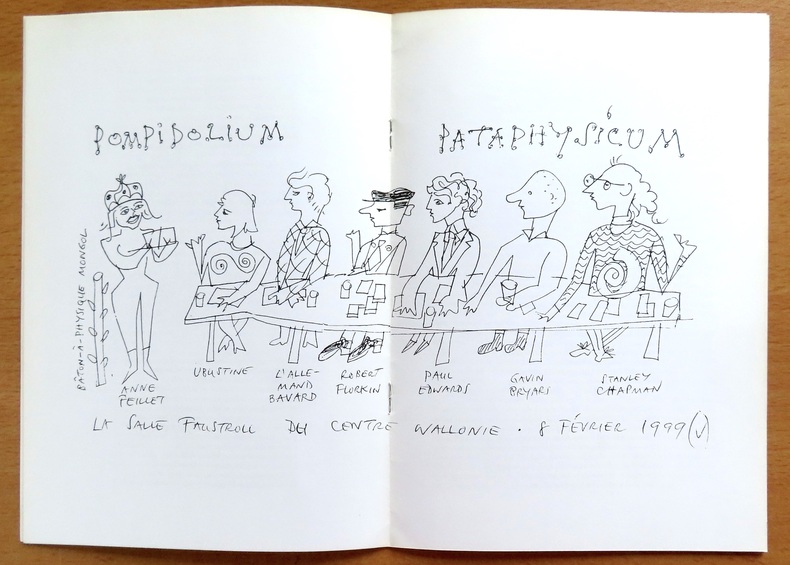 POMPIDOLIUM PATAPHYSICUM
BÂTON-À-PHYSIQUE MONGOL
ANNE
FEILLET
UBUSTINE
L'ALLE-
MAND
BAVARD
ROBERT
FLORKIN
PAUL
EDWARDS
GAVIN
BRYARS
STANLEY
CHAPMAN
LA SALLE FAUSTROLL DU CENTRE WALLONIE · 8 FÉVRIER 1999 (V)